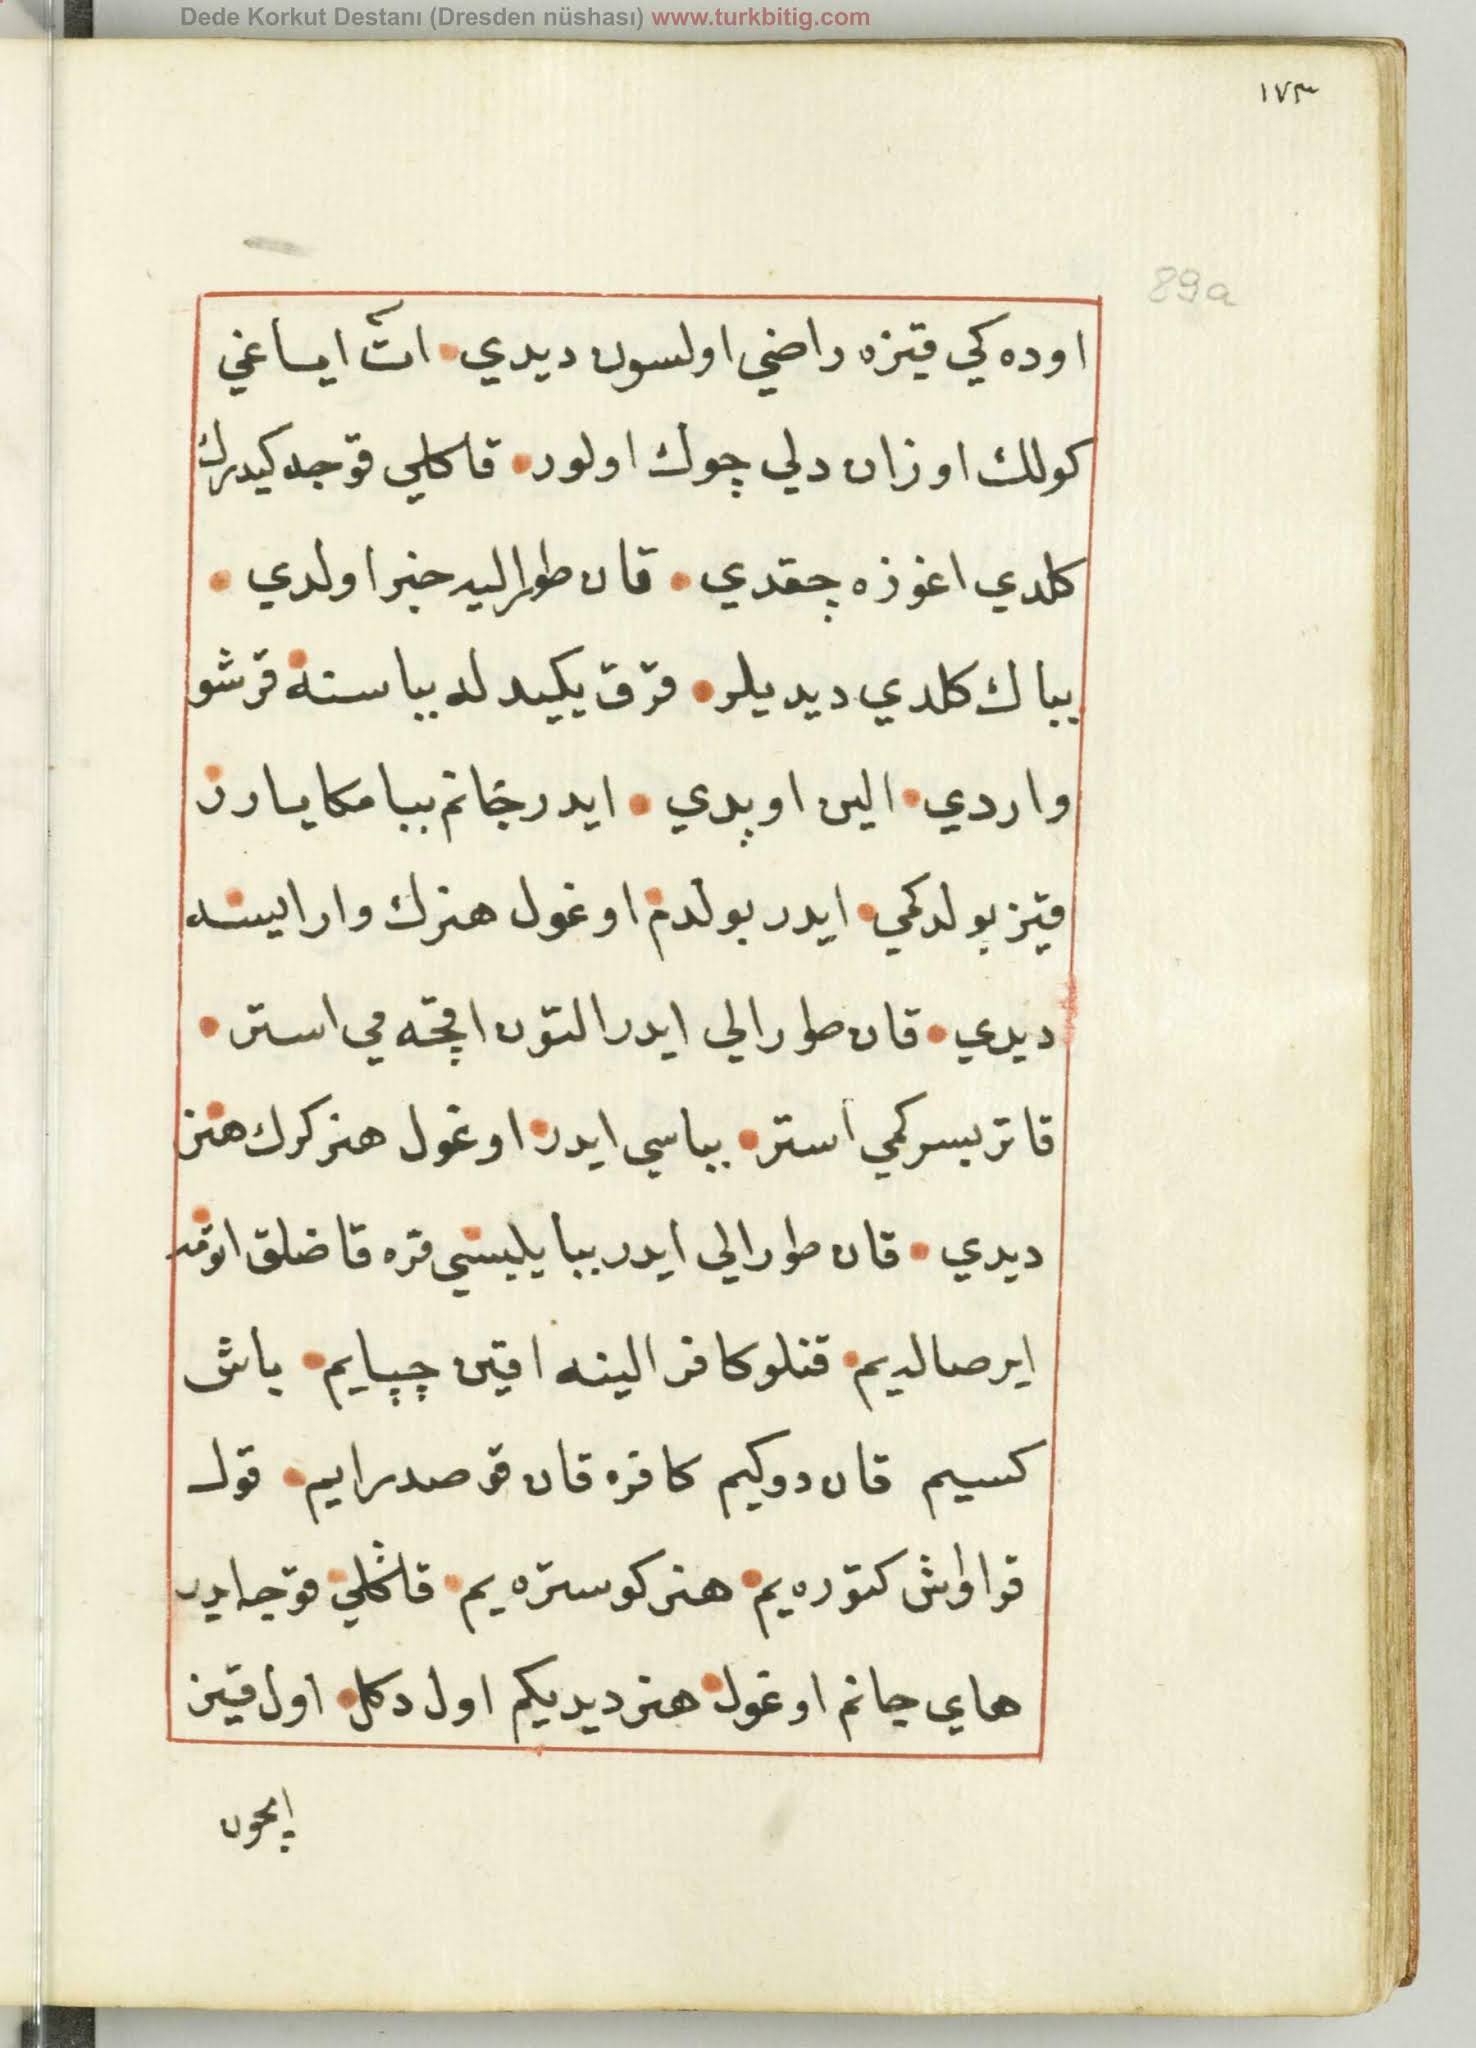 Dede Korkut Destanı (Dresden nüshası) www.turkbitig.com
١٧٣
89a
اوده كي قيزه راضي اولسون ديدي • ات اياغي
كولك اوزان دلي چوك اولور • قاكلي قوجه كيدرك
كلدي اغوزه چقدي • قان طوراليه خبر اولدي •
بباك كلدي ديديلر • قرق يكيدله بباسنه قرشو
واردي • الين اوپدي • ايدر جانم ببا مكا يارر
قيز بولدكمي • ايدر بولدم اوغول هنرك وار ايسه
ديدي • قان طورالي ايدر التون اقچه مي استر •
قاتر بيسركمي استر • بباسي ايدر اوغول هنر كرك هنر
ديدي • قان طورالي ايدر ببا يليسي قره قاضلق اتومه
اير صالديم • قنلو كافر الينه اقين چپايم • باش
كسيم قان دوكيم كافره قان قوصدرايم • قول
قراواش كتوره يم • هنر كوستره يم • قاكلي قوجه ايدر
هاي جانم اوغول هنر ديديكم اول دكل • اول قيز
ايچون